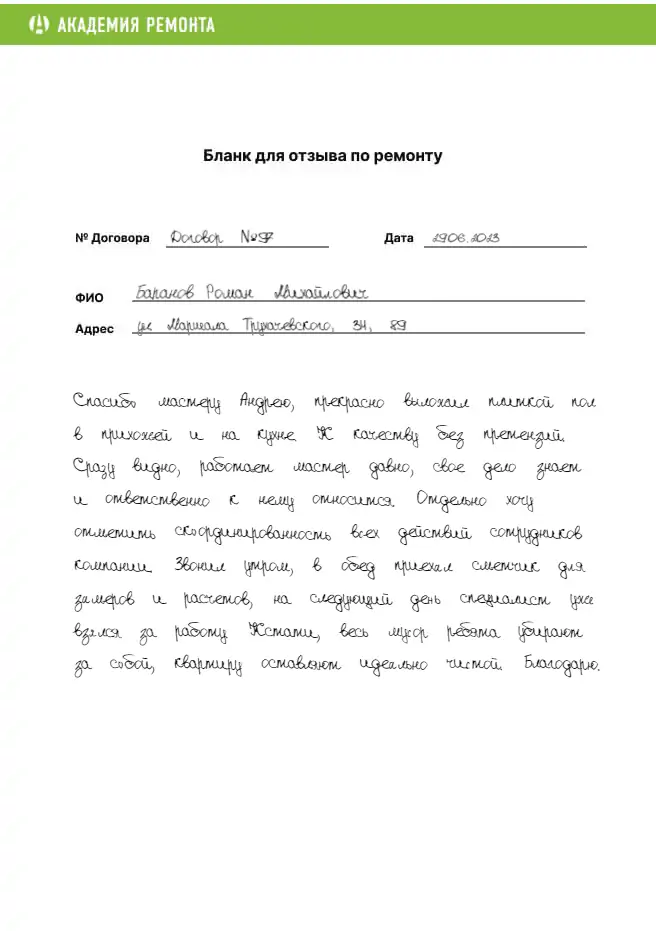 АКАДЕМИЯ РЕМОНТА
Бланк для отзыва по ремонту
№ Договора Договор №97 Дата 29.06.2023
ФИО Баранов Роман Михайлович
Адрес ул Маршала Тухачевского, 34, 89
Спасибо мастеру Андрею, прекрасно выложил плиткой пол
в прихожей и на кухне. К качеству без претензий.
Сразу видно, работает мастер давно, свое дело знает
и ответственно к нему относится. Отдельно хочу
отметить скоординированность всех действий сотрудников
компании. Звонил утром, в обед приехал сметчик для
замеров и расчетов, на следующий день специалист уже
взялся за работу. Кстати, весь мусор ребята убирают
за собой, квартиру оставляют идеально чистой. Благодарю.